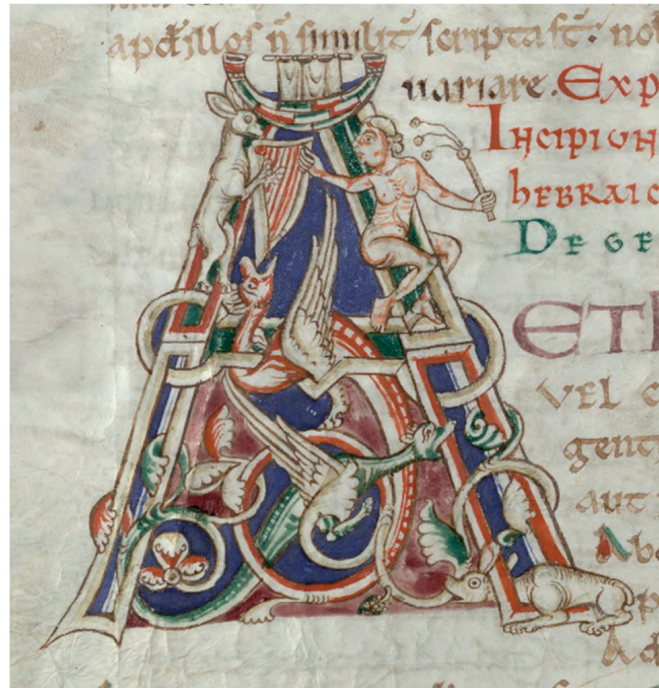 apd̄ illos n̄ similit̄ scripta st̄. nob
uariare. Exp
Incipiun
hebraic
De ge
Eth
vel c
gent
aut
Ab
p
Ad